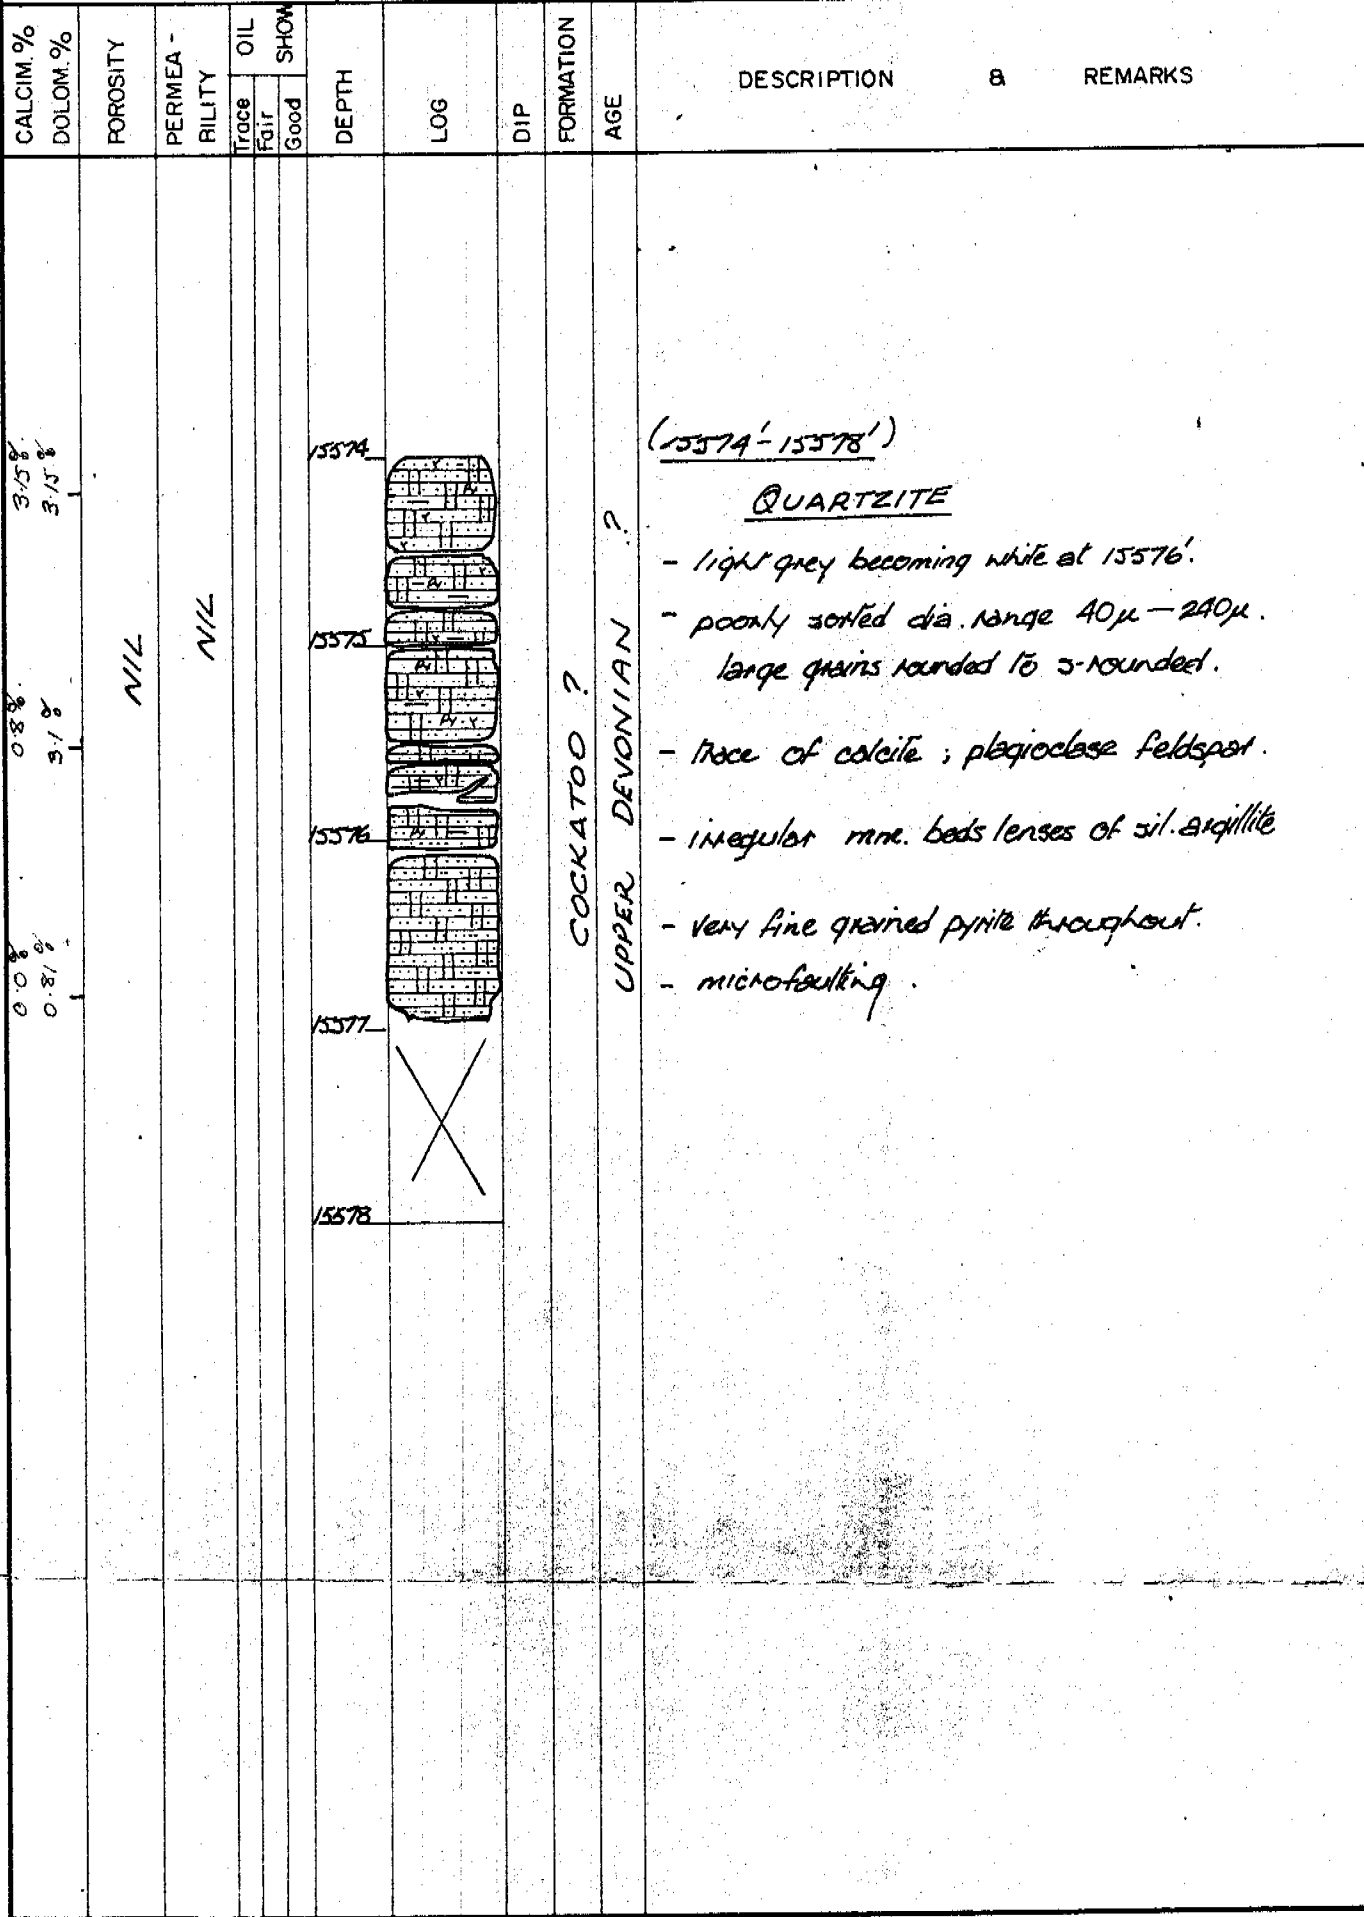 CALCIM. %
DOLOM. %
POROSITY
PERMEA-
BILITY
OIL SHOW
Trace
Fair
Good
DEPTH
LOG
DIP
FORMATION
AGE
DESCRIPTION & REMARKS
3.15%
3.15%
0.8%
3.1%
0.0%
0.81%
NIL
NIL
15574
15575
15576
15577
15578
COCKATOO ?
UPPER DEVONIAN ?
(15574' - 15578')
QUARTZITE
- light grey becoming white at 15576'.
- poorly sorted dia. range 40µ — 240µ.
large grains rounded to s-rounded.
- Trace of calcite ; plagioclase feldspar.
- irregular mm. beds lenses of sil. argillite
- very fine grained pyrite throughout.
- microfaulting .